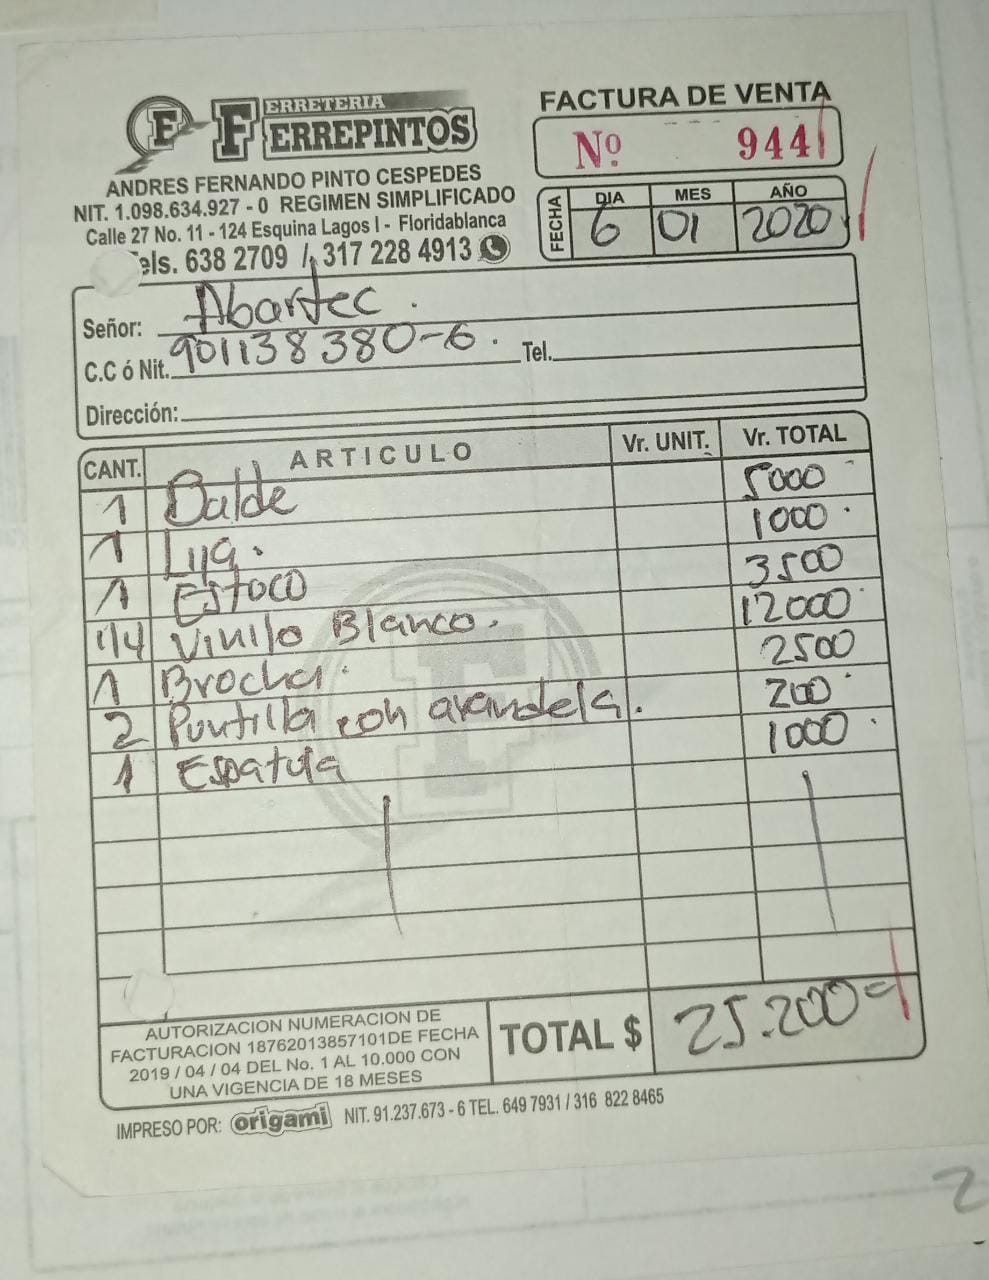 FERRETERIA
FERREPINTOS
ANDRES FERNANDO PINTO CESPEDES
NIT. 1.098.634.927 - 0 REGIMEN SIMPLIFICADO
Calle 27 No. 11 - 124 Esquina Lagos I - Floridablanca
Tels. 638 2709 / 317 228 4913
FACTURA DE VENTA
Nº 944
FECHA DIA MES AÑO
6 01 2020
Señor: Abartec.
C.C ó Nit. 901138380-6. Tel.
Dirección:
CANT. ARTICULO Vr. UNIT. Vr. TOTAL
1 Balde 5000
1 Lija. 1000
1 Estoco 3500
1/4 Vinilo Blanco. 12000
1 Brocha. 2500
2 Puntilla con arandela. 200
1 Espatula 1000
AUTORIZACION NUMERACION DE
FACTURACION 18762013857101DE FECHA
2019 / 04 / 04 DEL No. 1 AL 10.000 CON
UNA VIGENCIA DE 18 MESES
TOTAL $ 25.200=
IMPRESO POR: origami NIT. 91.237.673 - 6 TEL. 649 7931 / 316 822 8465
2